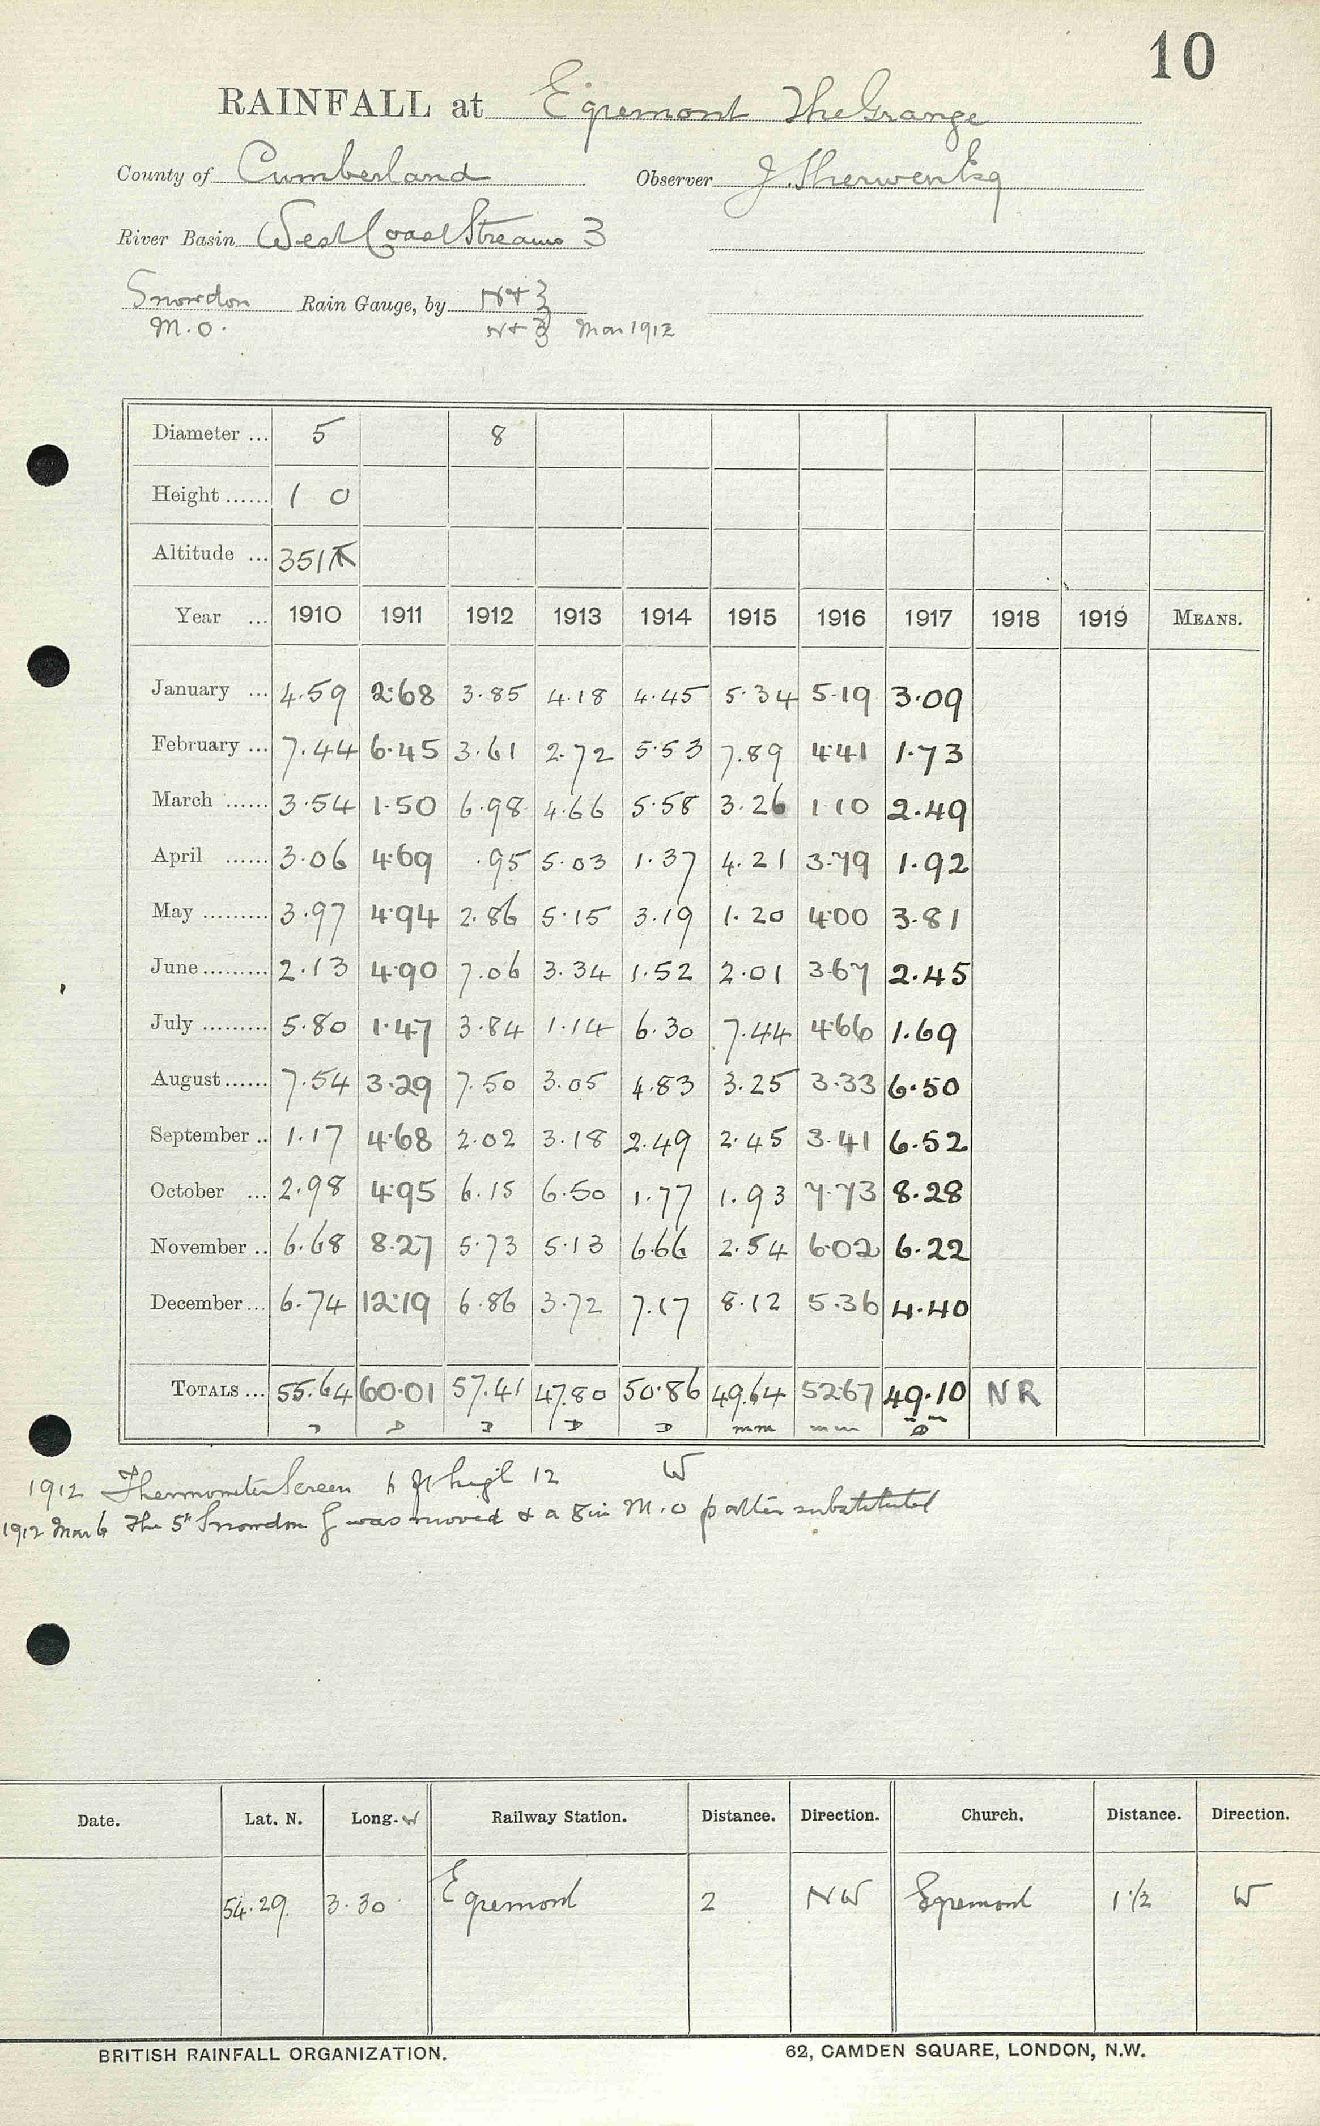 10
RAINFALL at Egremont The Grange
County of Cumberland Observer J. Sherwen Esq
River Basin West Coast Streams 3
Snowdon Rain Gauge, by N & Z
M.O. N & Z Mar 1912
Diameter ... 5 8
Height ...... 1 0
Altitude ... 351
Year ... 1910 1911 1912 1913 1914 1915 1916 1917 1918 1919 MEANS.
January ... 4.59 2.68 3.85 4.18 4.45 5.34 5.19 3.09
February ... 7.44 6.45 3.61 2.72 5.53 7.89 4.41 1.73
March ...... 3.54 1.50 6.98 4.66 5.58 3.26 1.10 2.49
April ...... 3.06 4.69 .95 5.03 1.37 4.21 3.79 1.92
May ......... 3.97 4.94 2.86 5.15 3.19 1.20 4.00 3.81
June ......... 2.13 4.90 7.06 3.34 1.52 2.01 3.67 2.45
July ......... 5.80 1.47 3.84 1.14 6.30 7.44 4.66 1.69
August ...... 7.54 3.29 7.50 3.05 4.83 3.25 3.33 6.50
September .. 1.17 4.68 2.02 3.18 2.49 2.45 3.41 6.52
October ... 2.98 4.95 6.15 6.50 1.77 1.93 7.73 8.28
November .. 6.68 8.27 5.73 5.13 6.66 2.54 6.02 6.22
December ... 6.74 12.19 6.86 3.72 7.17 8.12 5.36 4.40
TOTALS ... 55.64 60.01 57.41 47.80 50.86 49.64 52.67 49.10 NR
D D D D mm mm
1912 Thermometer Screen ft high 12 W
1912 Mar 6 The 5" Snowdon G was moved & a 8in M.O pattern substituted
Date. Lat. N. Long. W Railway Station. Distance. Direction. Church. Distance. Direction.
54.29 3.30 Egremont 2 NW Egremont 1 1/2 W
BRITISH RAINFALL ORGANIZATION. 62, CAMDEN SQUARE, LONDON, N.W.